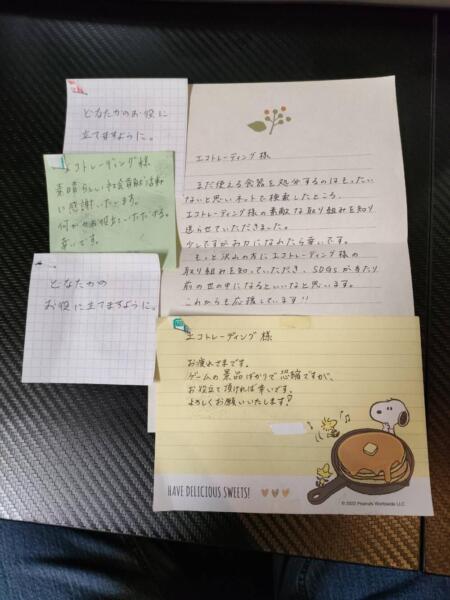 どなたかのお役に
立てますように。
エコトレーディング様
素晴らしい社会貢献活動
に感謝いたします。
何かお役立ていただける
幸いです。
どなたかの
お役に立てますように。
エコトレーディング様
まだ使える食器を処分するのはもったい
ないと思いネットで検索したところ、
エコトレーディング様の素敵な取り組みを知り
送らせていただきました。
少しですがお力になれたら幸いです。
もっと沢山の方にエコトレーディング様の
取り組みを知っていただき、SDGsが当たり
前の世の中になるといいなと思います。
これからも応援しています!!
エコトレーディング様
お疲れさまです。
ゲームの景品ばかりで恐縮ですが、
お役立て頂ければ幸いです。
よろしくお願いいたします!
HAVE DELICIOUS SWEETS!
© 2022 Peanuts Worldwide LLC